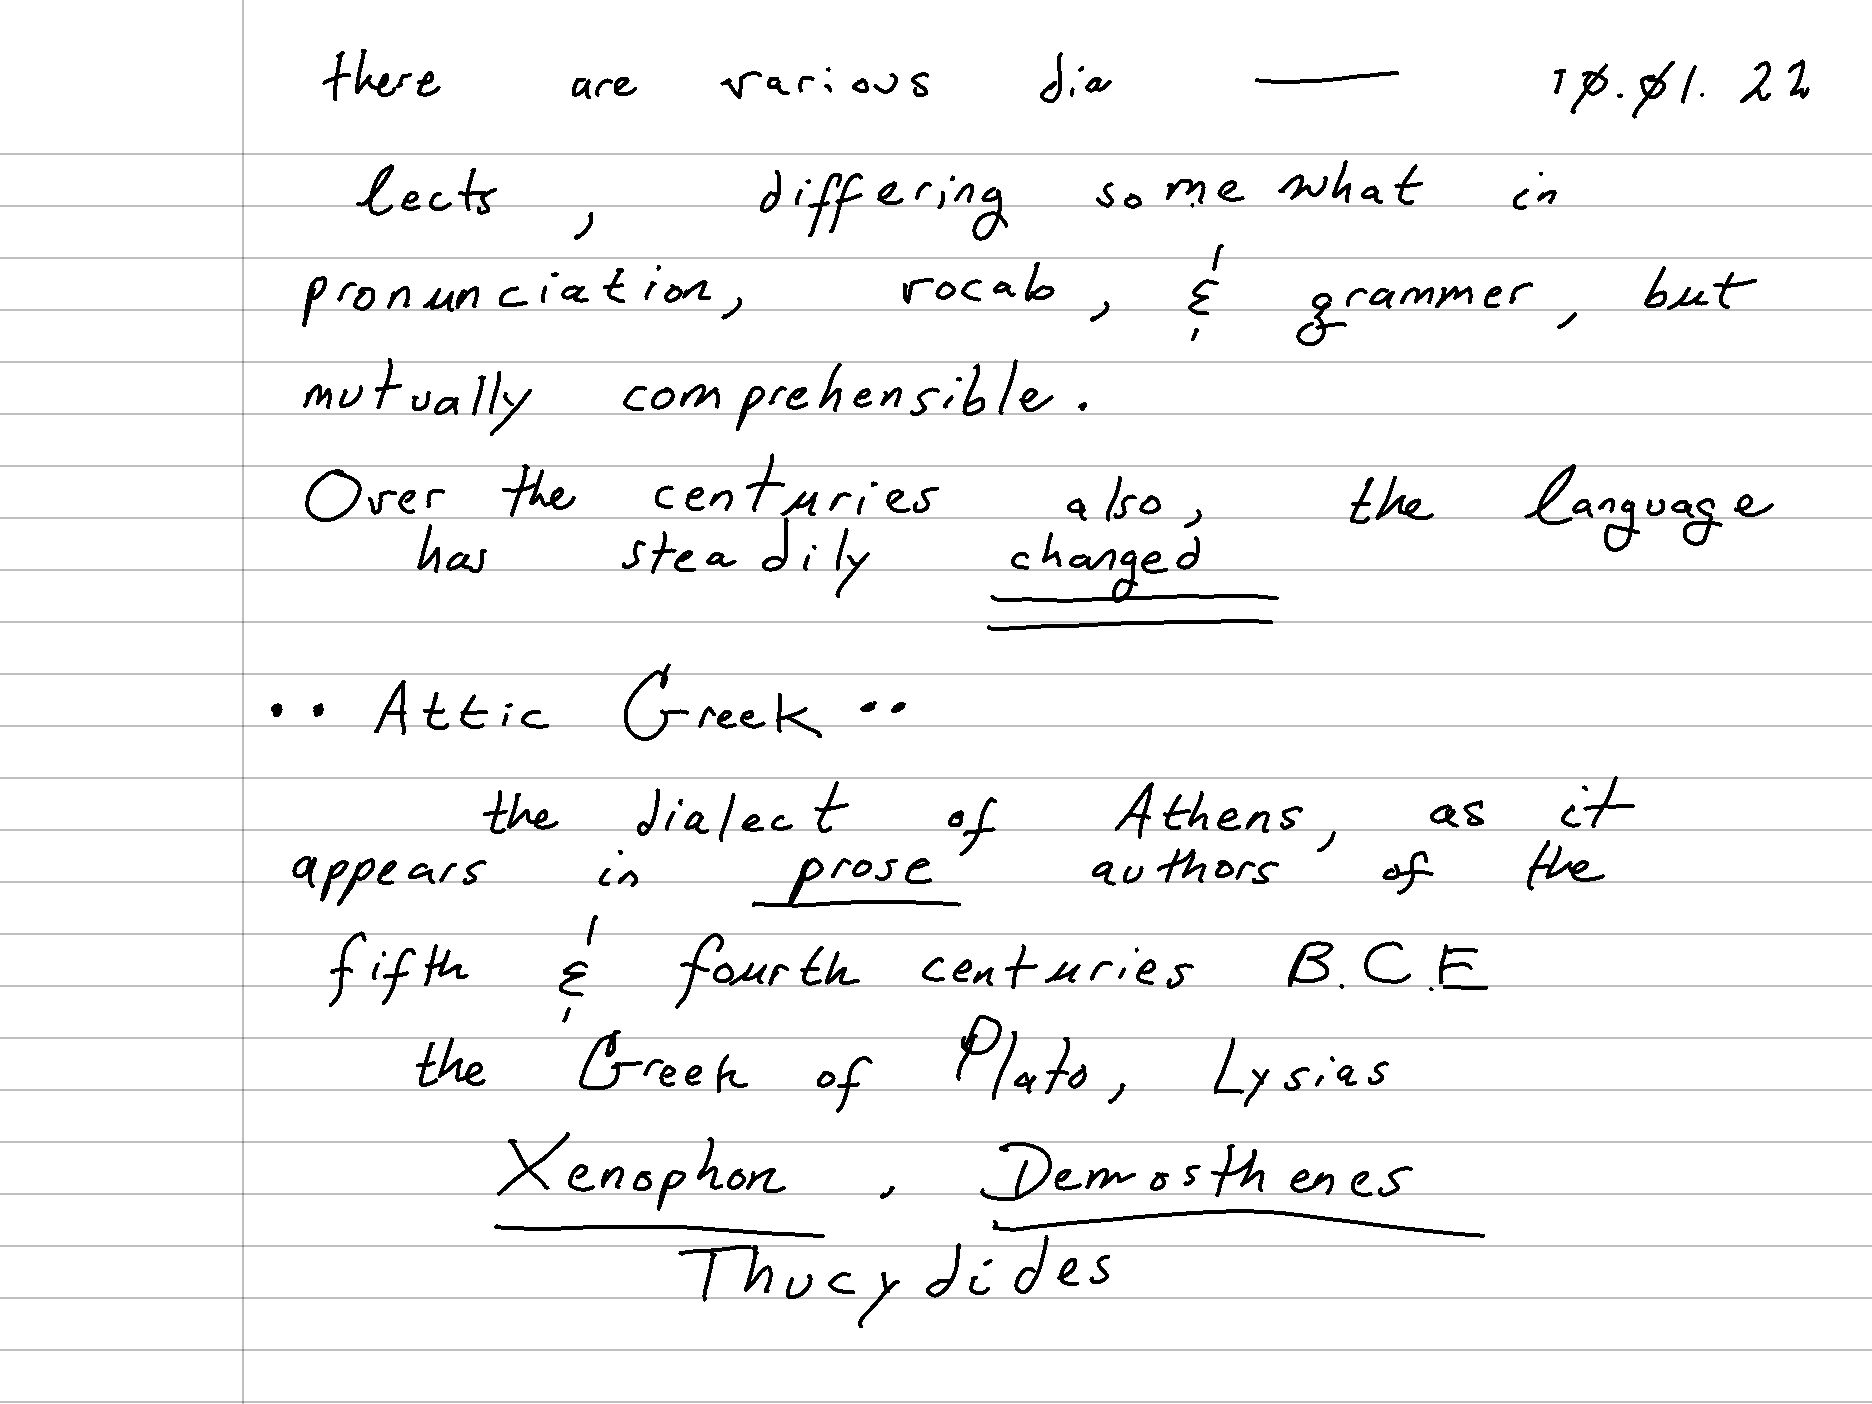 there are various dia — 10.01.22
lects, differing somewhat in
pronunciation, vocab, & grammer, but
mutually comprehensible.
Over the centuries also, the language
has steadily changed
•• Attic Greek ••
the dialect of Athens, as it
appears in prose authors of the
fifth & fourth centuries B.C.E
the Greek of Plato, Lysias
Xenophon, Demosthenes
Thucydides